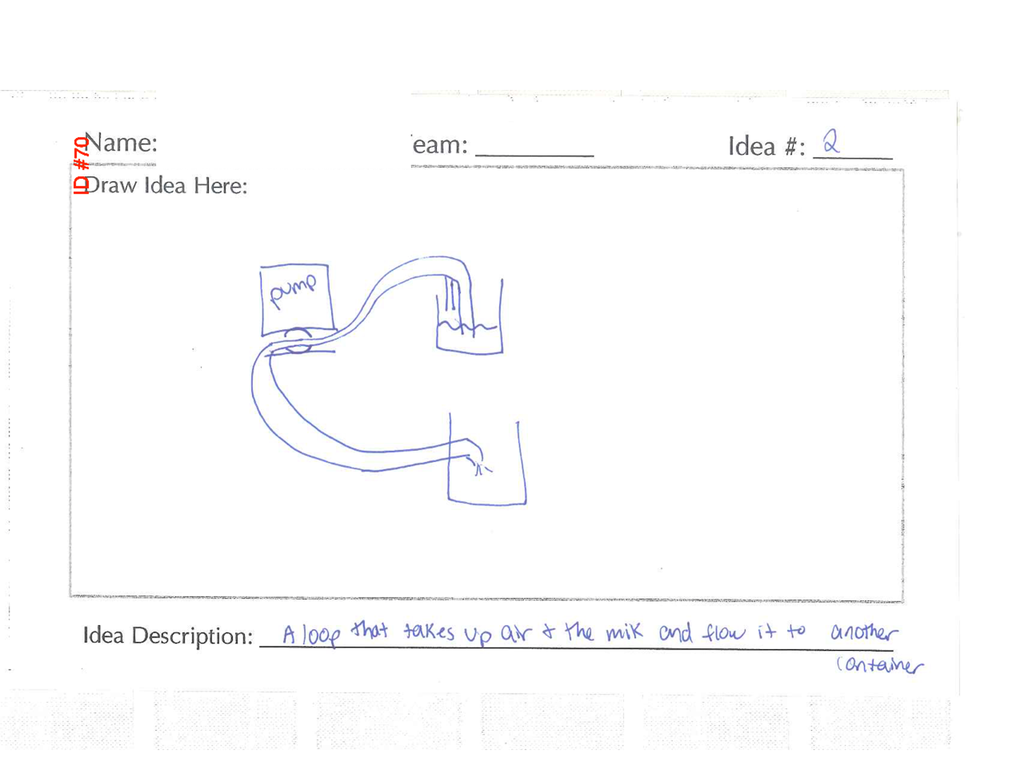 ID #70
Name:
eam: Idea #: 2
Draw Idea Here:
pump
Idea Description: A loop that takes up air & the milk and flow it to another
container